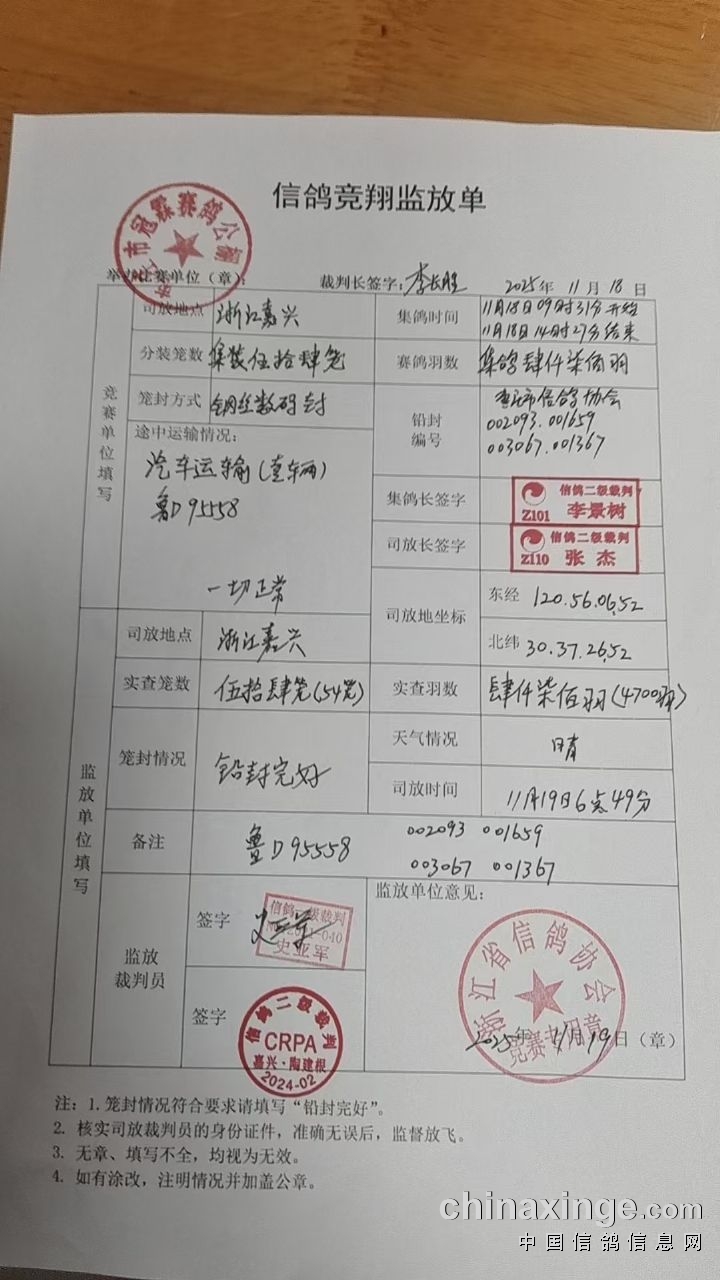 信鸽竞翔监放单
市冠霖赛鸽公棚
举办比赛单位（章）：
裁判长签字：李长胜
2025年 11月 18日
竞赛单位填写
司放地点 浙江嘉兴
集鸽时间 11月18日09时31分开始
11月18日14时27分结束
分装笼数 集装伍拾肆笼
赛鸽羽数 集鸽肆仟柒佰羽
笼封方式 钢丝数码封
铅封编号
市信鸽协会
002093.001659
003067.001367
途中运输情况：
汽车运输(直车辆)
鲁D95558
一切正常
集鸽长签字
信鸽二级裁判
Z101 李景树
司放长签字
信鸽二级裁判
Z110 张杰
司放地坐标
东经 120.56.06.52
北纬 30.37.26.52
监放单位填写
司放地点 浙江嘉兴
实查笼数 伍拾肆笼(54笼)
实查羽数 肆仟柒佰羽(4700羽)
笼封情况 铅封完好
天气情况 晴
司放时间 11月19日6点49分
备注 鲁D95558
002093 001659
003067 001367
监放裁判员
签字
信鸽二级裁判
史亚军
签字
信鸽二级裁判
CRPA
嘉兴·陶建根
2024-02
监放单位意见：
浙江省信鸽协会
竞赛专用章
2025年 11月 19日（章）
注：1. 笼封情况符合要求请填写“铅封完好”。
2. 核实司放裁判员的身份证件，准确无误后，监督放飞。
3. 无章、填写不全，均视为无效。
4. 如有涂改，注明情况并加盖公章。
chinaxinge.com
中国信鸽信息网